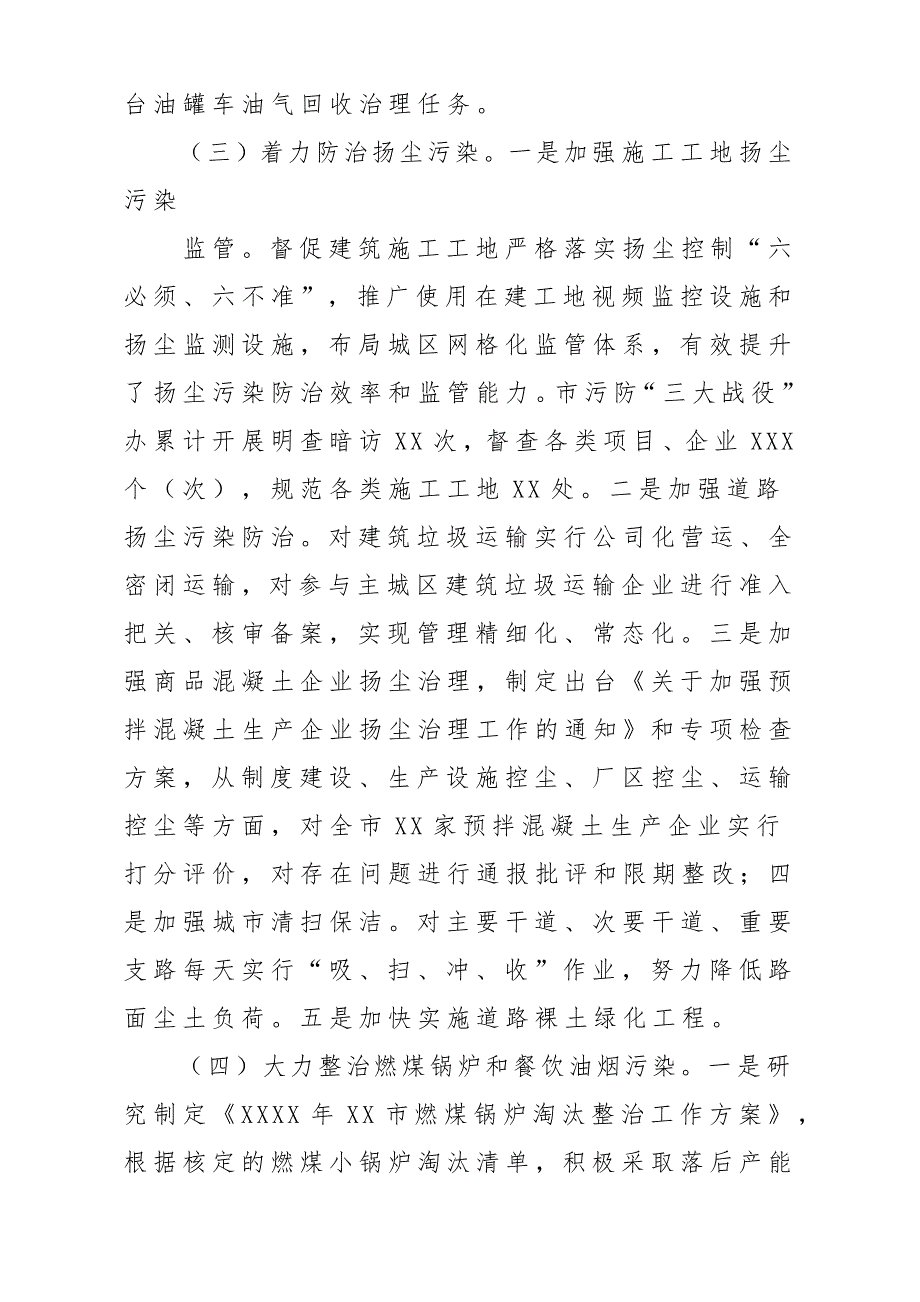 台油罐车油气回收治理任务。
（三）着力防治扬尘污染。一是加强施工工地扬尘
污染
监管。督促建筑施工工地严格落实扬尘控制“六
必须、六不准”，推广使用在建工地视频监控设施和
扬尘监测设施，布局城区网格化监管体系，有效提升
了扬尘污染防治效率和监管能力。市污防“三大战役”
办累计开展明查暗访 XX 次，督查各类项目、企业 XXX
个（次），规范各类施工工地 XX 处。二是加强道路
扬尘污染防治。对建筑垃圾运输实行公司化营运、全
密闭运输，对参与主城区建筑垃圾运输企业进行准入
把关、核审备案，实现管理精细化、常态化。三是加
强商品混凝土企业扬尘治理，制定出台《关于加强预
拌混凝土生产企业扬尘治理工作的通知》和专项检查
方案，从制度建设、生产设施控尘、厂区控尘、运输
控尘等方面，对全市 XX 家预拌混凝土生产企业实行
打分评价，对存在问题进行通报批评和限期整改；四
是加强城市清扫保洁。对主要干道、次要干道、重要
支路每天实行“吸、扫、冲、收”作业，努力降低路
面尘土负荷。五是加快实施道路裸土绿化工程。
（四）大力整治燃煤锅炉和餐饮油烟污染。一是研
究制定《XXXX 年 XX 市燃煤锅炉淘汰整治工作方案》，
根据核定的燃煤小锅炉淘汰清单，积极采取落后产能